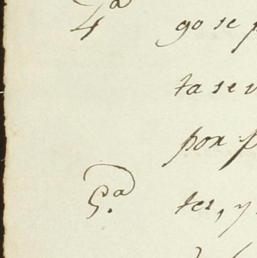 4ª go se p
ta se v
por p
5.ª tes, y